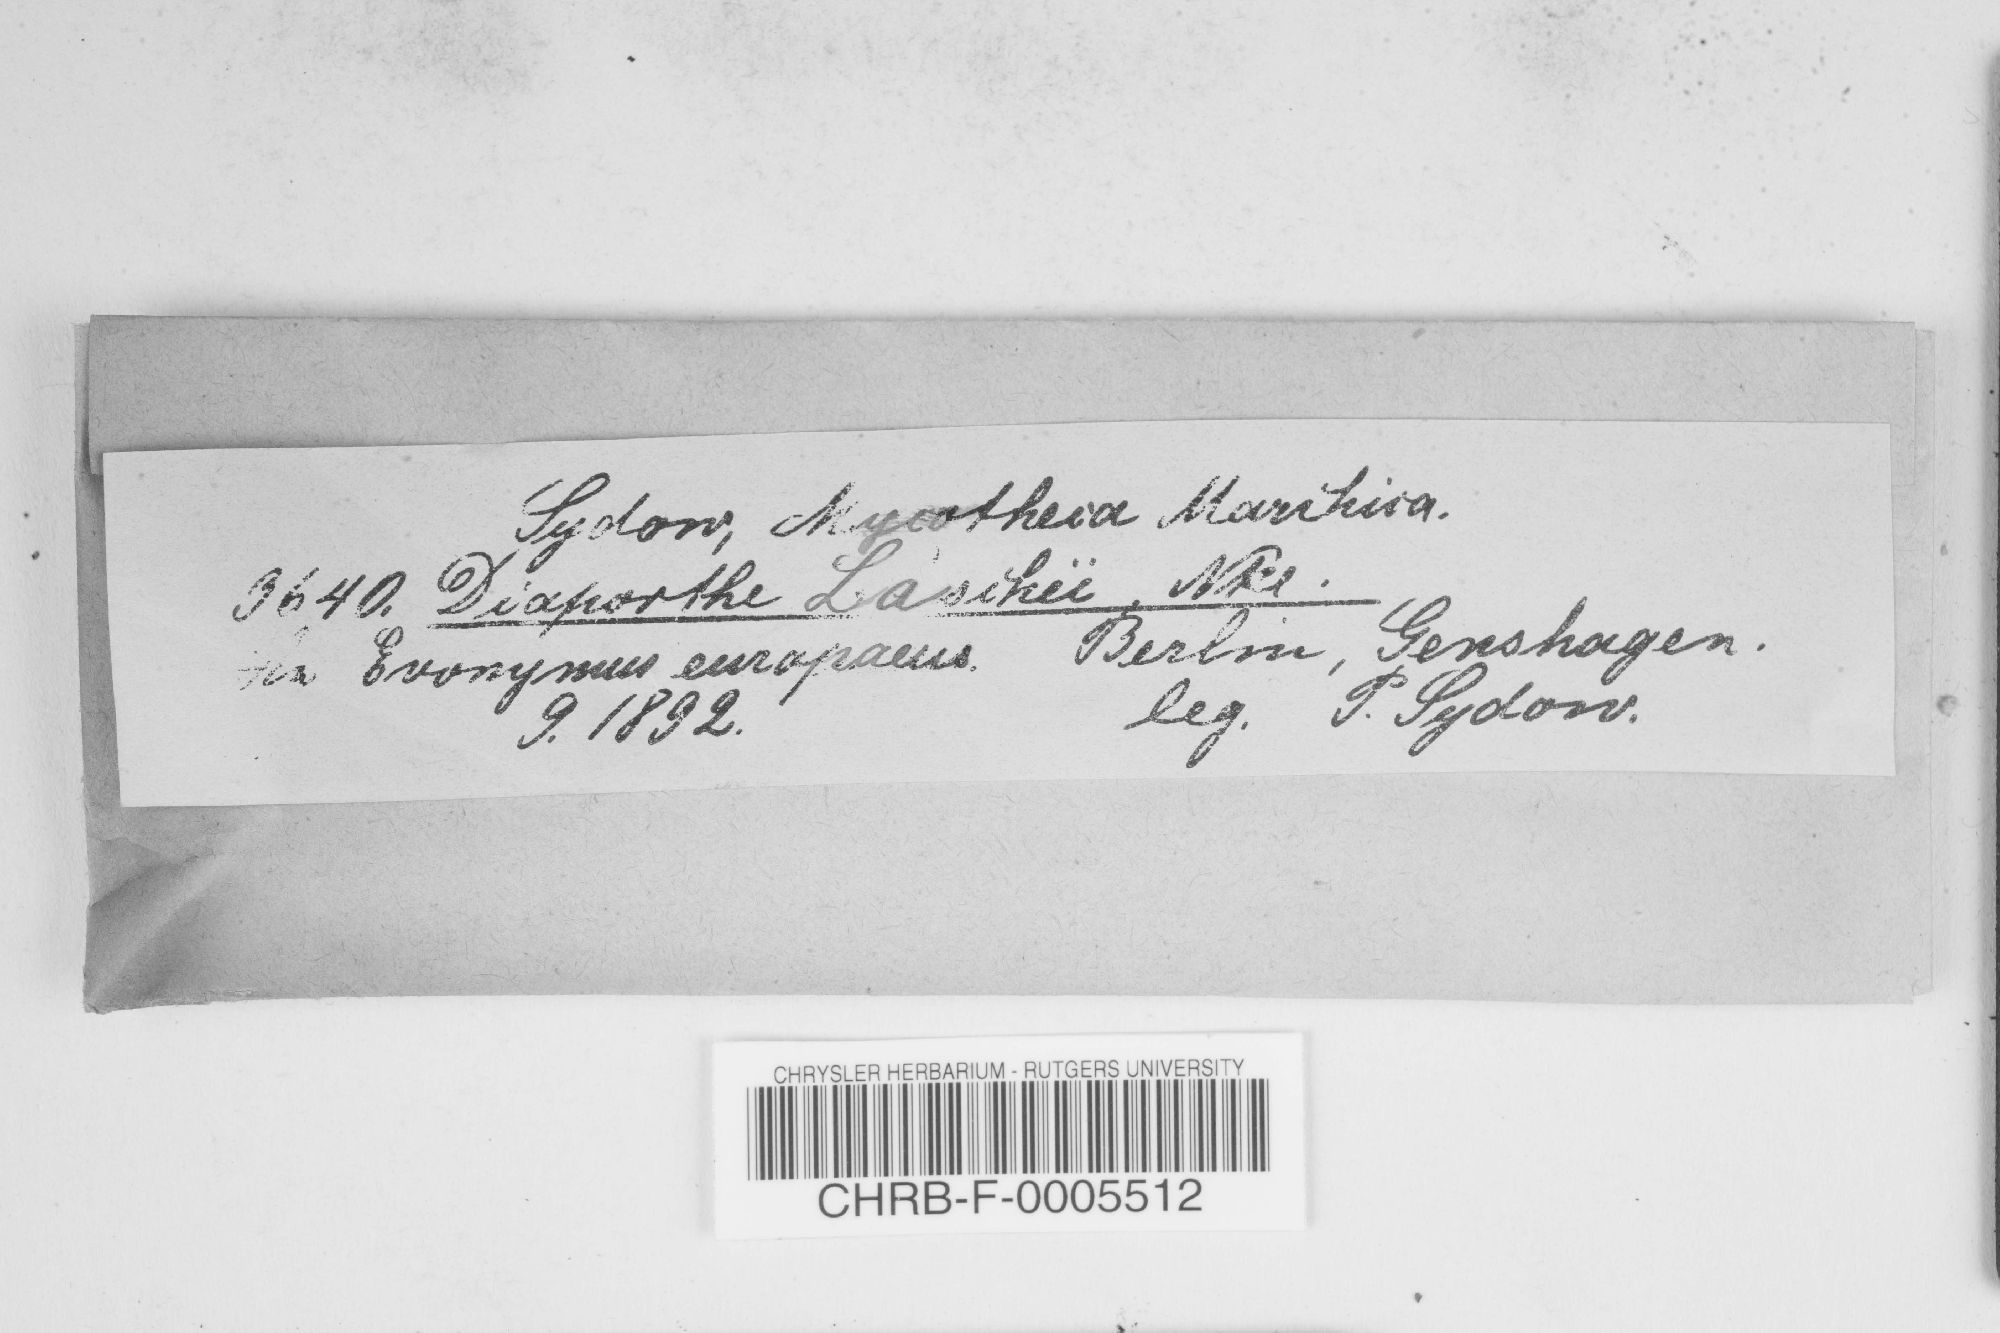 Sydow, Mycotheca Marchica.
3640. Diaporthe Laschii, Nke.
An Evonymus europaeus. Berlin, Genshagen.
9. 1892. leg. P. Sydow.
CHRYSLER HERBARIUM - RUTGERS UNIVERSITY
CHRB-F-0005512